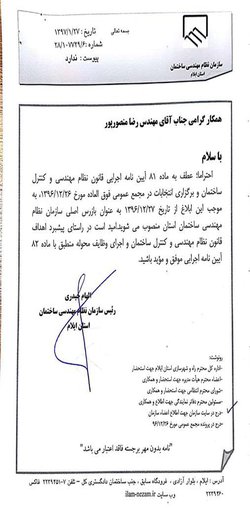 بسمه تعالی
تاریخ : ۱۳۹۷/۱/۲۷
شماره : ۲۸/۱۰۷۷۲۹/۶
پیوست : ندارد
سازمان نظام مهندسی ساختمان
استان ایلام
همکار گرامی جناب آقای مهندس رضا منصورپور
با سلام
احتراماً؛ عطف به ماده ۸۱ آیین نامه اجرایی قانون نظام مهندسی و کنترل
ساختمان و برگزاری انتخابات در مجمع عمومی فوق العاده مورخ ۱۳۹۶/۱۲/۲۶، به
موجب این ابلاغ از تاریخ ۱۳۹۶/۱۲/۲۷ به عنوان بازرس اصلی سازمان نظام
مهندسی ساختمان استان منصوب می شوید.امید است در راستای پیشبرد اهداف
قانون نظام مهندسی و کنترل ساختمان و اجرای وظایف محوله منطبق با ماده ۸۲
آیین نامه اجرایی موفق و مؤید باشید.
الهام حیدری
رئیس سازمان نظام مهندسی ساختمان
استان ایلام
رونوشت:
-اداره کل محترم راه و شهرسازی استان ایلام جهت استحضار
-اعضاء محترم هیأت مدیره جهت استحضار و همکاری
-شورای انتظامی جهت استحضار و همکاری
-مسئولین محترم دفاتر نمایندگی جهت اطلاع و همکاری
-درج در سایت سازمان جهت اطلاع اعضاء سازمان
-درج در پرونده مجمع عمومی مورخ ۹۶/۱۲/۲۶
"نامه بدون مهر برجسته فاقد اعتبار می باشد"
آدرس : ایلام ، بلوار آزادی ، فروشگاه سابق ، جنب ساختمان دادگستری کل – تلفن ۷-۲۲۲۹۴۵۱ فاکس
۲۲۲۹۴۶۰ وب سایت ilam-nezam.ir